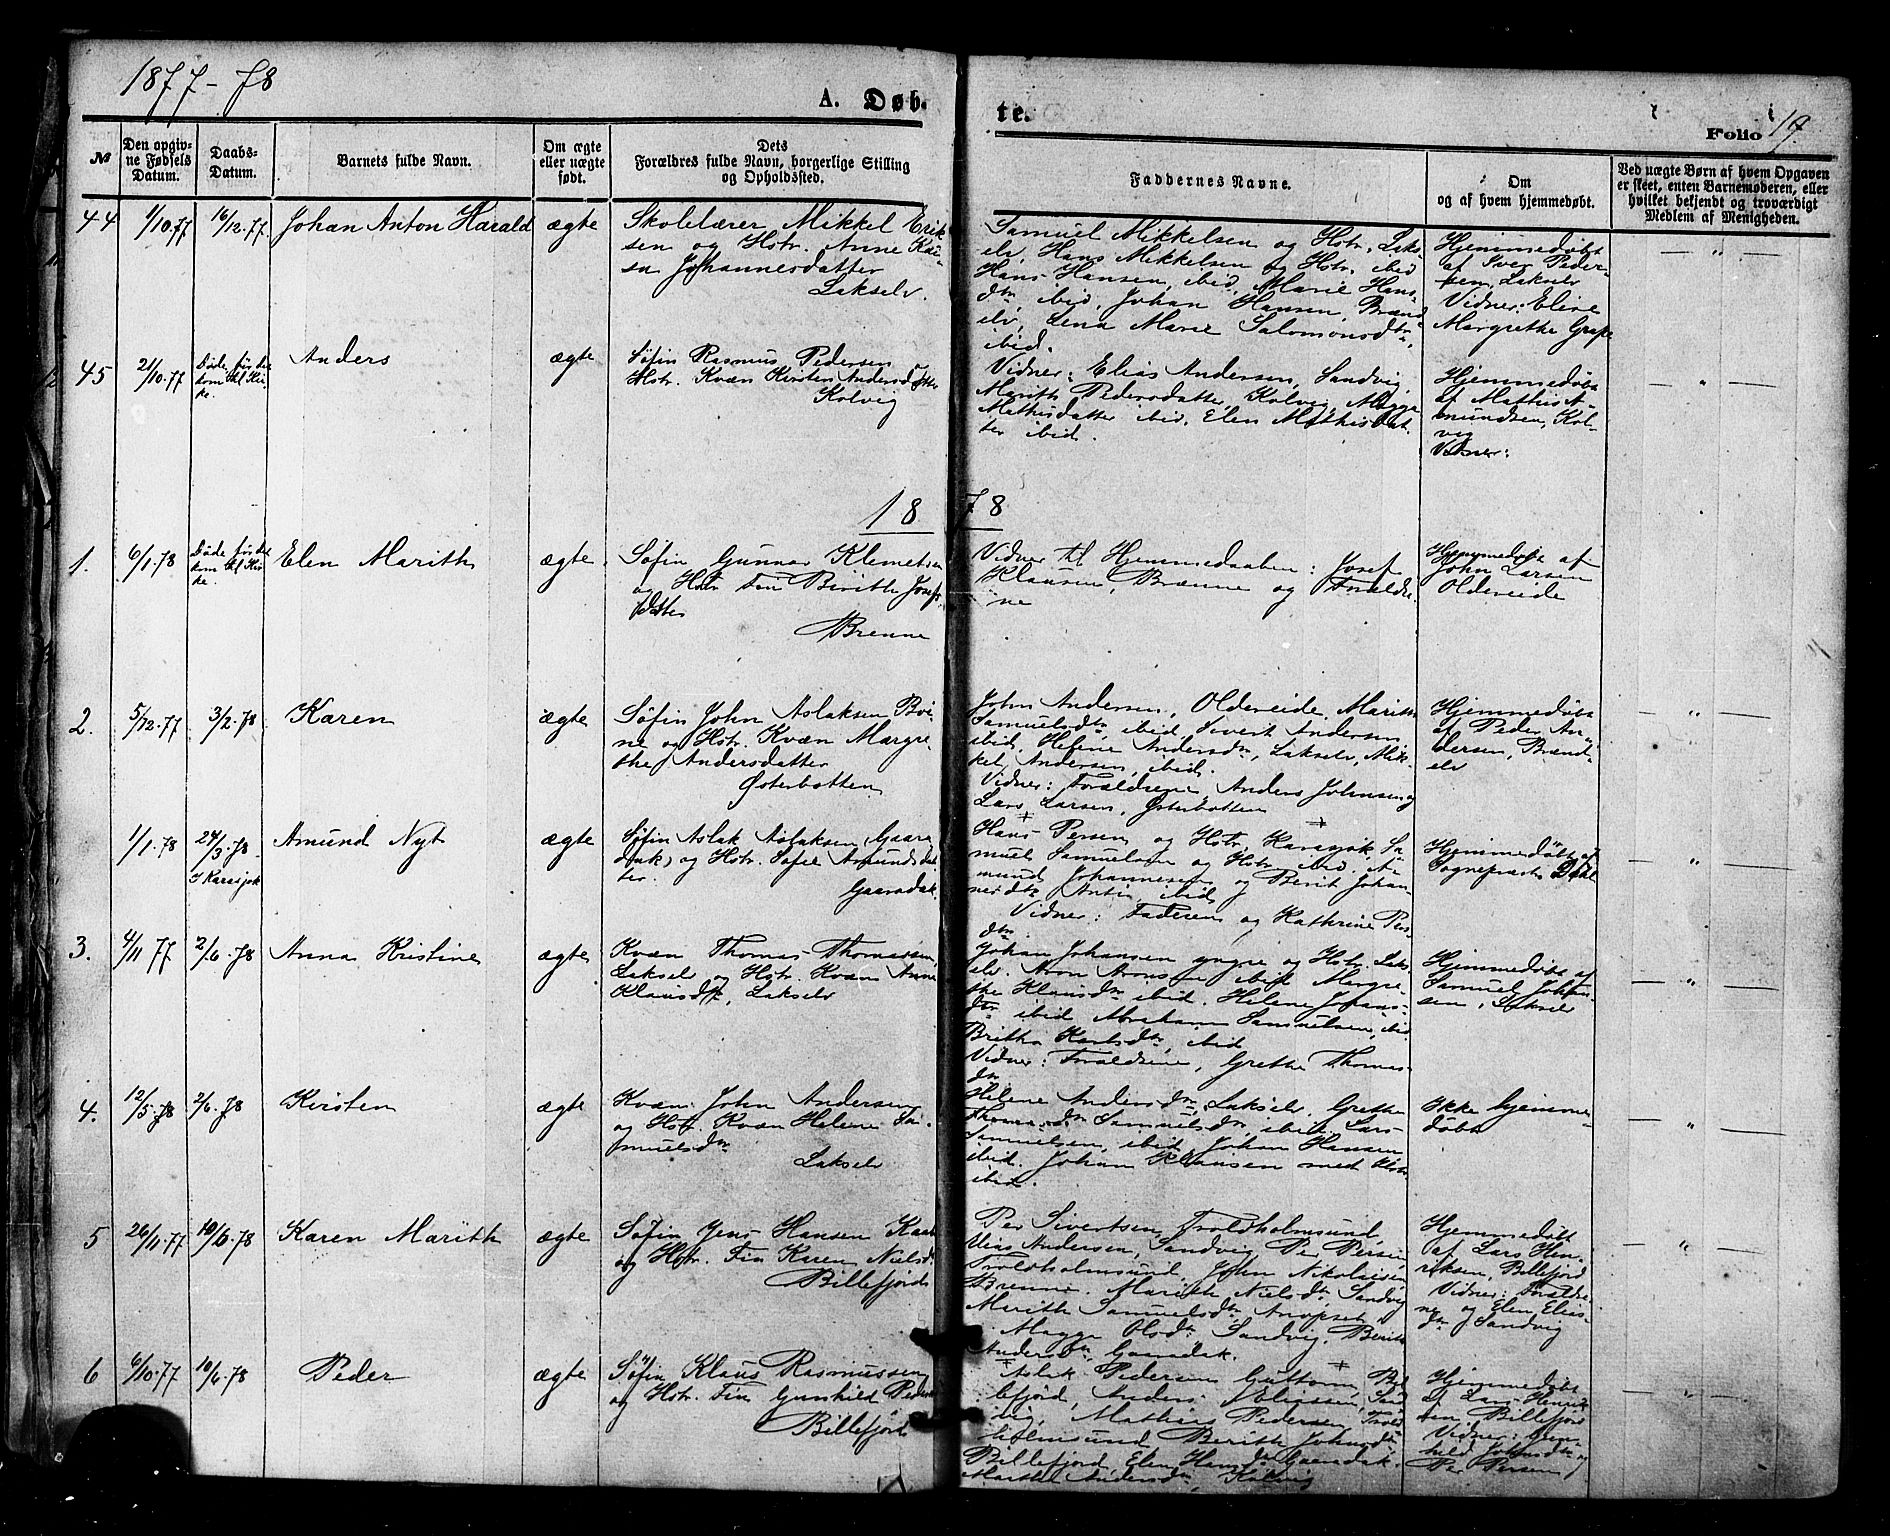 1877-78
A. Døb-
te.
Folio 19.
№
Den opgiv-
ne Fødsels
Datum.
Daabs-
Datum.
Barnets fulde Navn.
Om ægte
eller uægte
født.
Dets
Forældres fulde Navn, borgerlige Stilling
og Opholdssted.
Faddernes Navne.
Om
og af hvem hjemmedøbt.
Ved uægte Børn af hvem Opgaven
er skeet, enten Barnemoderen, eller
hvilket bekjendt og troværdigt
Medlem af Menigheden.
44
9/10.77
16/12.77.
Johan Anton Harald
ægte
Skolelærer Mikkel Erik-
sen og Hstr. Anne Kai-
sa Johannesdatter
Lakselv.
Samuel Mikkelsen og Hstr. Laks-
elv, Hans Mikkelsen og Hstr. ibid
Hans Hansen, ibid, Marie Hans-
dtr ibid, Johan Hansen, Brænd-
elv, Lena Marie Salomonsdtr.
ibid.
Hjemmedøbt
af Iver Peder-
sen, Lakselv
Vidner: Elise
Margrethe Grape
— „ —
45
21/10.77
Døde før det
kom til Kir-
ke.
Anders
ægte
Søfin Rasmus Pedersen
Hstr. Kvæn Kirsten Andersdatter
Kolvig
Vidner: Elias Andersen, Sandvig,
Marith Pedersdatter, Kolvig, Magga
Mathisdatter ibid. Elen Mathisdat-
ter ibid.
Hjemmedøbt
af Mathis A-
mundsen, Kol-
vig
Vidner:
— „ —
1878
1.
6/1.78
Døde før det
kom til Kir-
ke.
Elen Marith
ægte.
Søfin Gunnar Klemetsen
og Hstr Fin Birith Josefs-
datter
Brenne
Vidner til Hjemmedaaben: Josef
Klausen, Brænne og Forældre-
ne
Hjemmedøbt af
John Larsen
Oldereide
2.
5/12.77
3/2.78
Karen
ægte
Søfin John Aslaksen
og Hstr. Kvæn Margre-
the Andersdatter
Østerbotten
John Andersen, Oldereide, Marith
Samuelsdtr, ibid, Sivert Andersen
ibid, Helene Andersdtr, Lakselv, Mik-
kel Andersen, ibid.
Vidner: Forældrene Anders Johnsen og
Lars Larsen, Østerbotten
Hjemmedøbt
af Peder An-
dersen, Brænd-
elv
— „ —
1/1.78
24/3.78
I Karasjok
Amund Nyt
ægte
Søfin Aslak Aslaksen, (Gaara-
dak) og Hstr. Sofie Amundsdat-
ter.
Gaaradak.
Hans Persen og Hstr, Karasjok, Sa-
muel Samuelsen og Hstr. ibid. A-
mund Johannesen og Berit Johan-
nesdtr Anti ibid
Vidner: Faderen og Kathrine Pers-
dtr
Hjemmedøbt af
Sogneprest Dahl
— „ —
3.
4/11 77
2/6.78
Anna Kristine
ægte
Kvæn Thomas Thomassen,
Lakselv og Hstr. Kvæn Anne
Klausdtr, Lakselv
Johan Johansen yngre og Hstr. Laks-
elv. Aron Aronsen ibid Margre-
the Klausdtr ibid. Helene Johans-
dtr ibid Abraham Samuelsen, ibid
Britha Karlsdtr, ibid
Vidner: Forældrene, Grethe Thomas-
dtr
Hjemmedøbt af
Samuel Johan-
sen, Lakselv
— „ —
4.
12/5.78
2/6.78
Kirsten
ægte
Kvæn John Andersen
og Hstr. Kvæn Helene Sa-
muelsdtr
Lakselv
Helene Andersdtr, Lakselv. Grethe
Samuelsdtr, ibid, Lars
Samuelsen, ibid, Johan Hansen
ibid. Johan Klausen med Hstr
ibid.
Ikke hjemme-
døbt
— „ —
5
26/11.77
10/6.78
Karen Marith
ægte
Søfin Jens Hansen
og Hstr. Fin Karen Nielsdtr
Billefjord
Per Sivertsen, Troldholmsund,
Elias Andersen, Sandvig, Per Persen,
Troldholmsund, John Nikolaisen
Brenne. Marith Nielsdtr Sandvig
Marith Samuelsdtr,
Magga Olsdtr. Sandvig, Berith
Andersdtr, Gaaradak.
Hjemmedøbt
af Lars Hen-
riksen, Billefjord
Vidner: Forældre-
ne og Elen Elias-
dtr Sandvig
— „ —
6
6/10.77
10/6.78
Peder
ægte
Søfin Klaus Rasmussen
og Hstr. Fin Gunhild Pedersdtr
Billefjord
Aslak Pedersen Guttorm, Bil-
lefjord, Anders Eliassen, Sand-
vig, Mathis Pedersen, Trold-
holmsund Berith Johnsdtr
Billefjord, Elen Hansdtr Gaaradak.
Marthe Andersdtr, Kolvig
Hjemmedøbt
af Lars Henrik-
sen, Billefjord
Vidner: Gun-
hild Johnsdtr og
Per Persen
— „ —